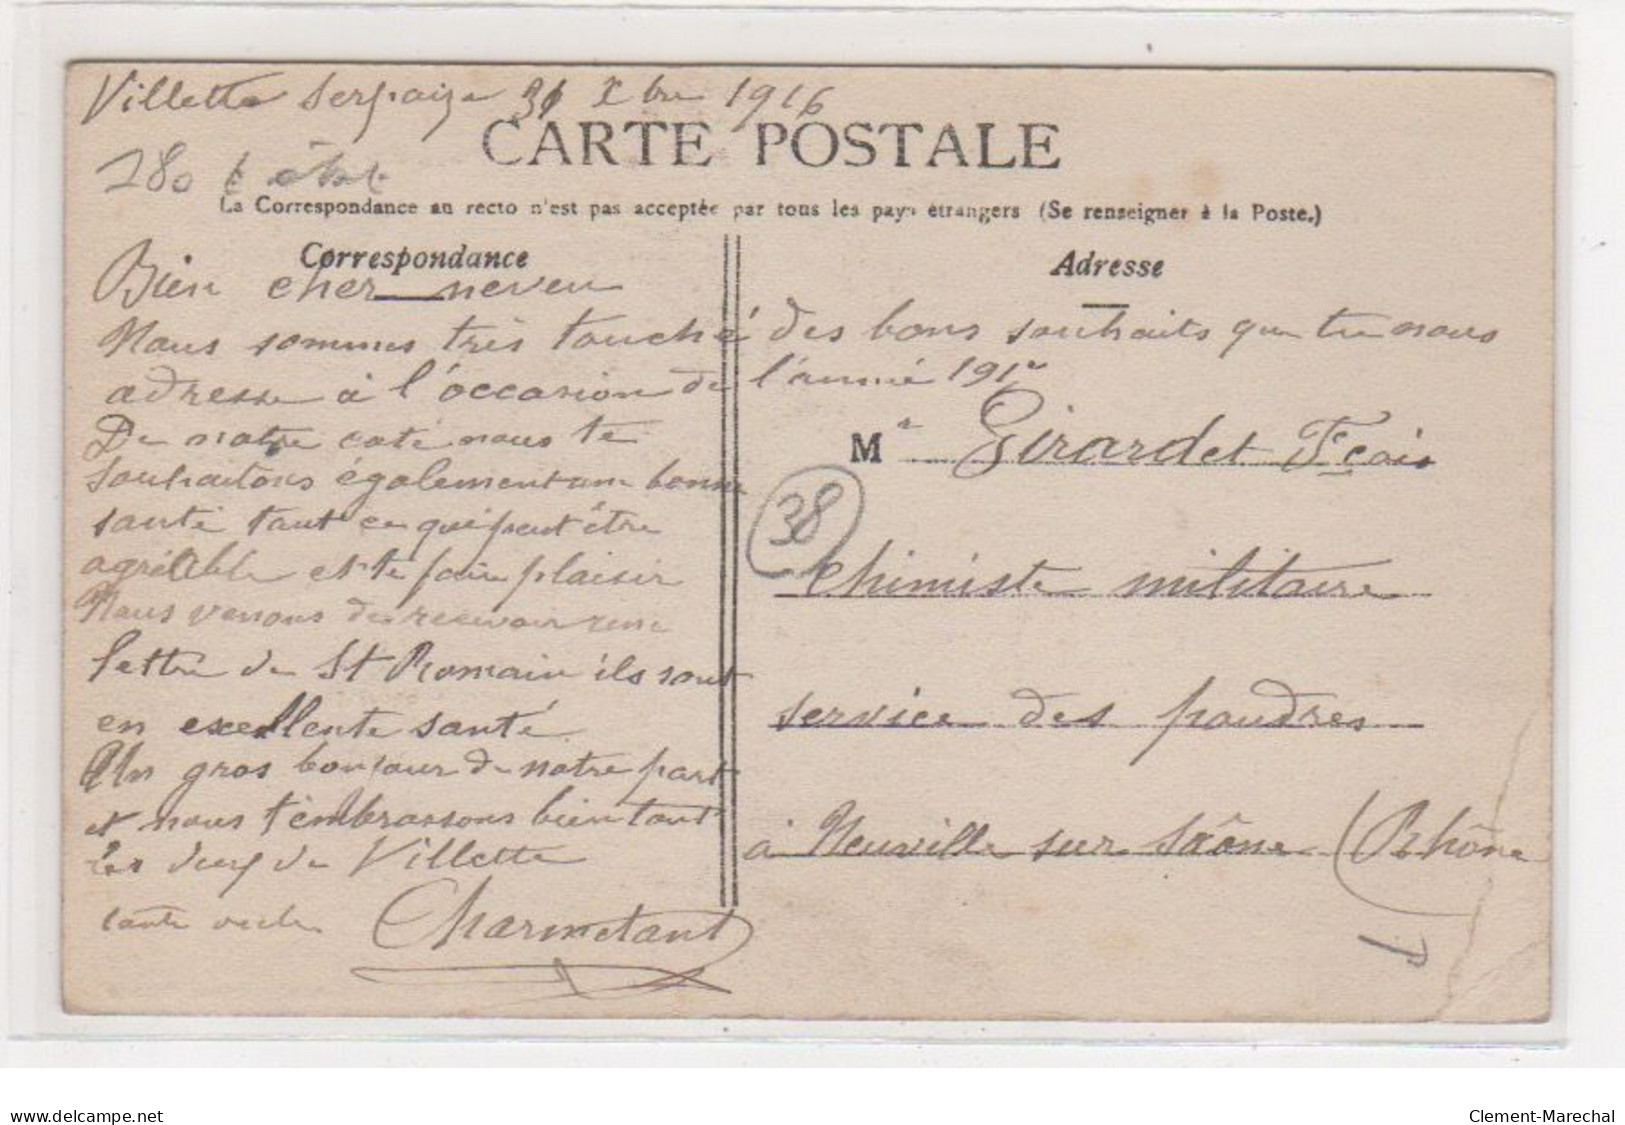 Villette Serpaize 31 Xbre 1916
CARTE POSTALE
280
La Correspondance au recto n'est pas acceptée par tous les pays étrangers (Se renseigner à la Poste.)
Correspondance
Bien cher neveu
Nous sommes très touché des bons souhaits que tu nous
adresse à l'occasion de l'année 1917
De notre coté nous te
souhaitons également une bonne
santé tout ce qui peut être
agréable et te faire plaisir
Nous venons de recevoir une
lettre de St Romain ils sont
en excellente santé
Un gros bonjour de notre part
et nous t'embrassons bien tous
de Villette
Charmetant
Adresse
Mr Girardet Fcois
38
chimiste militaire
service des poudres
à Neuville sur Saône (Rhône
delcampe.net
Clement-Marechal